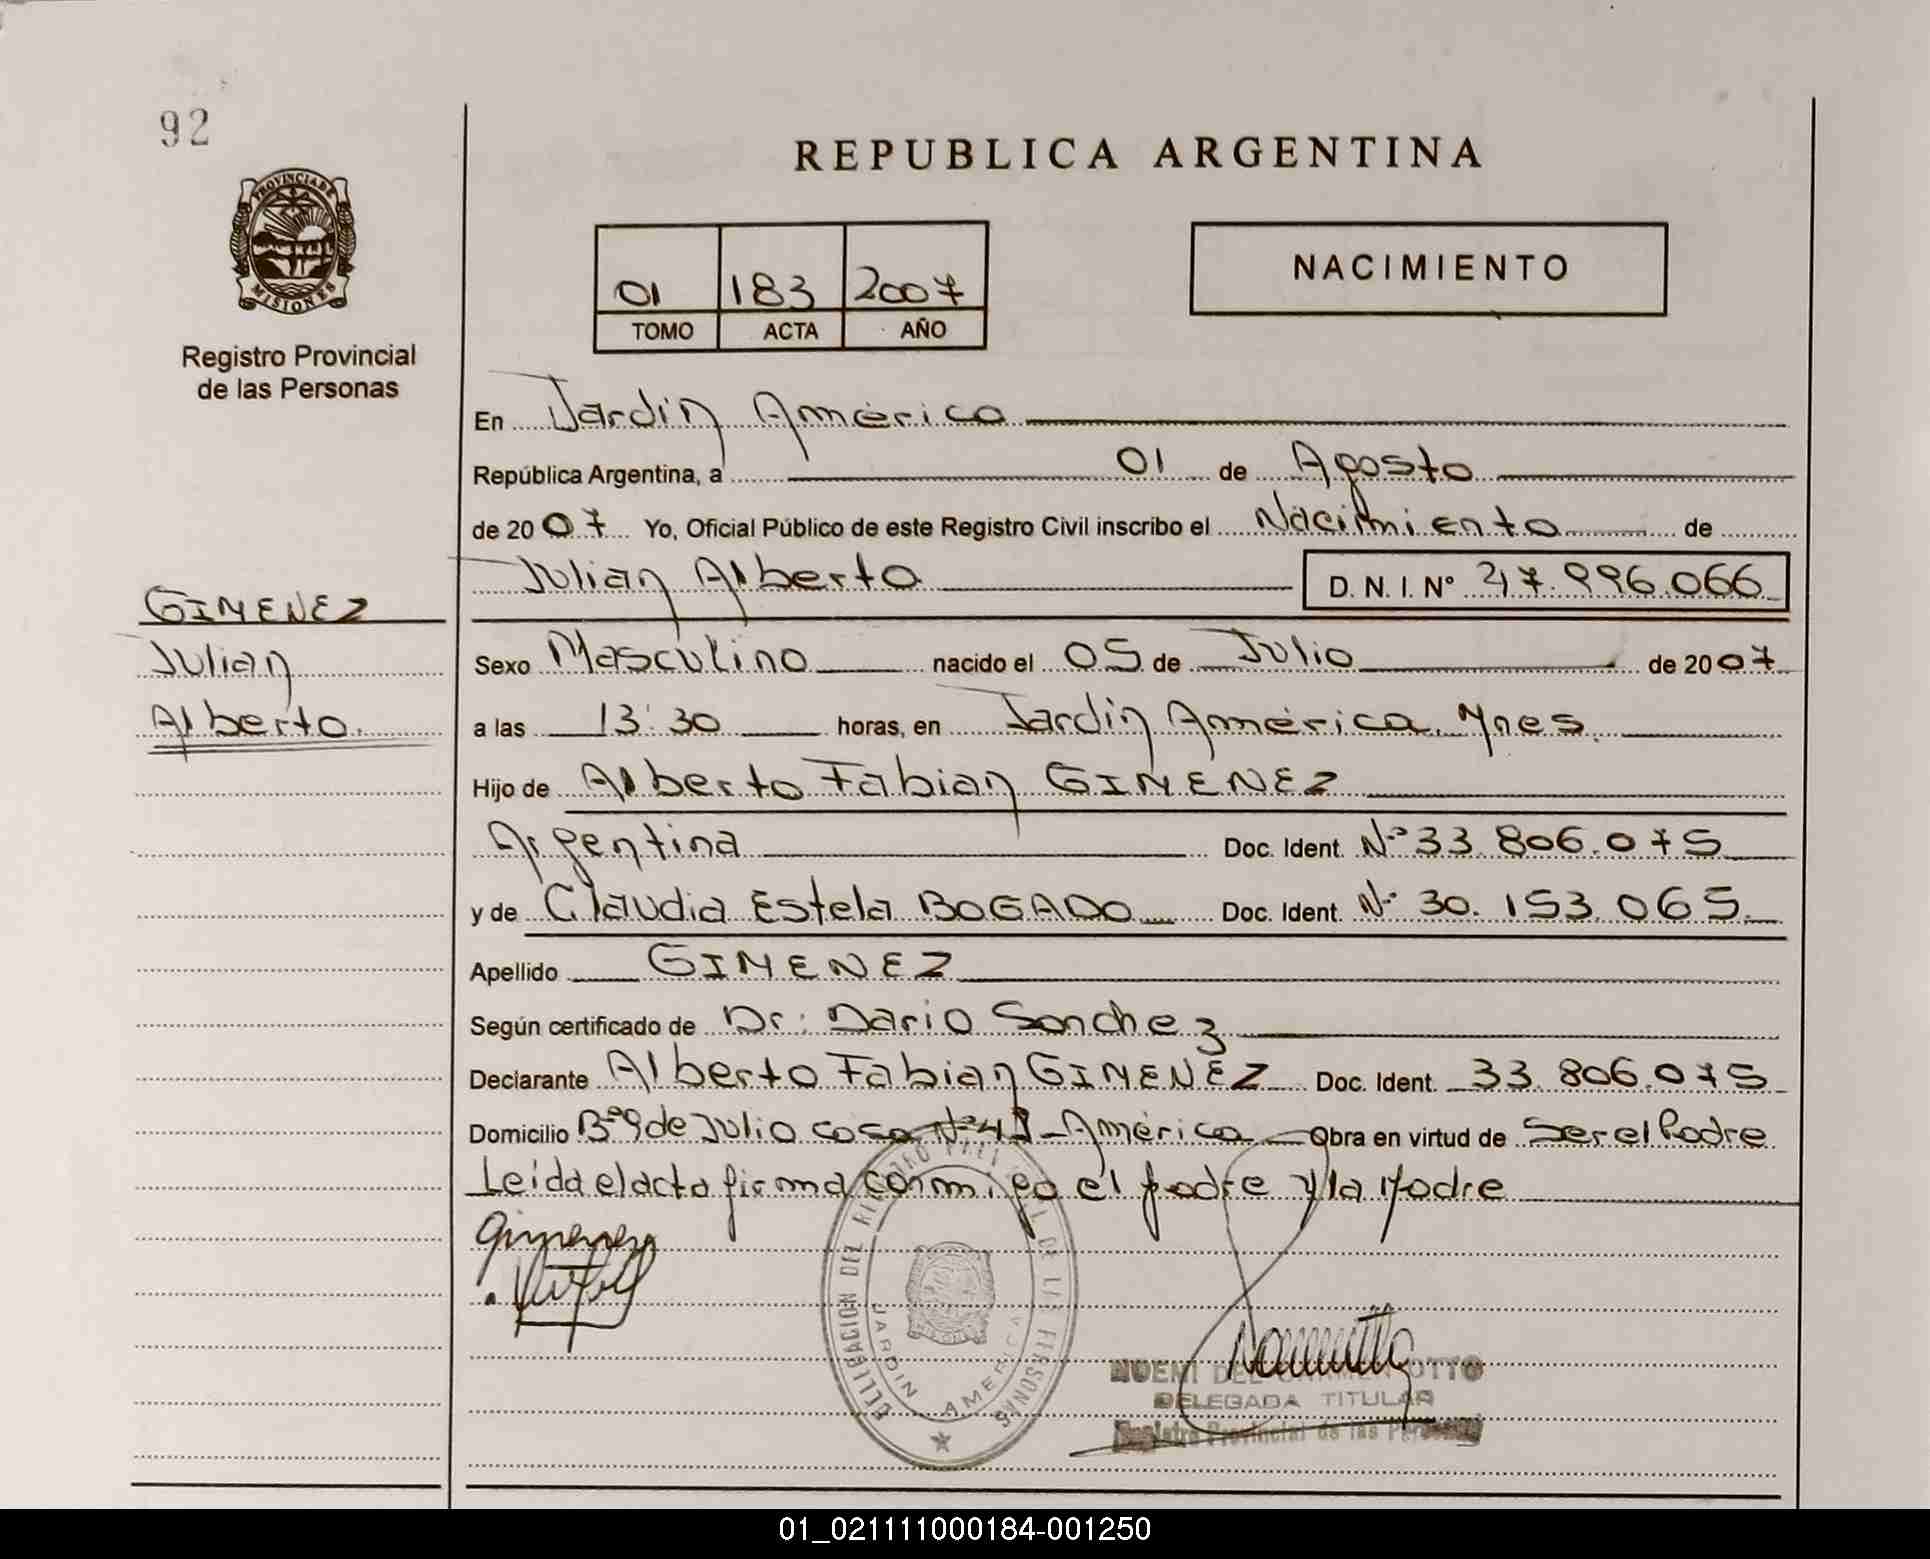 92
REPUBLICA ARGENTINA
PROVINCIA DE
MISIONES
Registro Provincial
de las Personas
01 183 2007
TOMO ACTA AÑO
NACIMIENTO
En Jardín América
República Argentina, a 01 de Agosto
de 2007 Yo, Oficial Público de este Registro Civil inscribo el Nacimiento de
Julian Alberto D. N. I. N° 47.996.066
GIMENEZ
Julian
Alberto.
Sexo Masculino nacido el 05 de Julio de 2007
a las 13:30 horas, en Jardín América, Mnes.
Hijo de Alberto Fabian GIMENEZ
Argentina Doc. Ident. N° 33.806.075
y de Claudia Estela BOGADO Doc. Ident. N° 30.153.065
Apellido GIMENEZ
Según certificado de Dr. Dario Sanchez
Declarante Alberto Fabian GIMENEZ Doc. Ident. 33.806.075
Domicilio B° 9 de Julio casa N° - América Obra en virtud de Ser el Padre
Leida el acta firma conmigo el padre y la Madre
Gimenez
DELEGACION DEL REGISTRO PROVINCIAL DE LAS PERSONAS
JARDIN AMERICA
NOEMI DEL CARMEN OTTO
DELEGADA TITULAR
Registro Provincial de las Personas
01_021111000184-001250